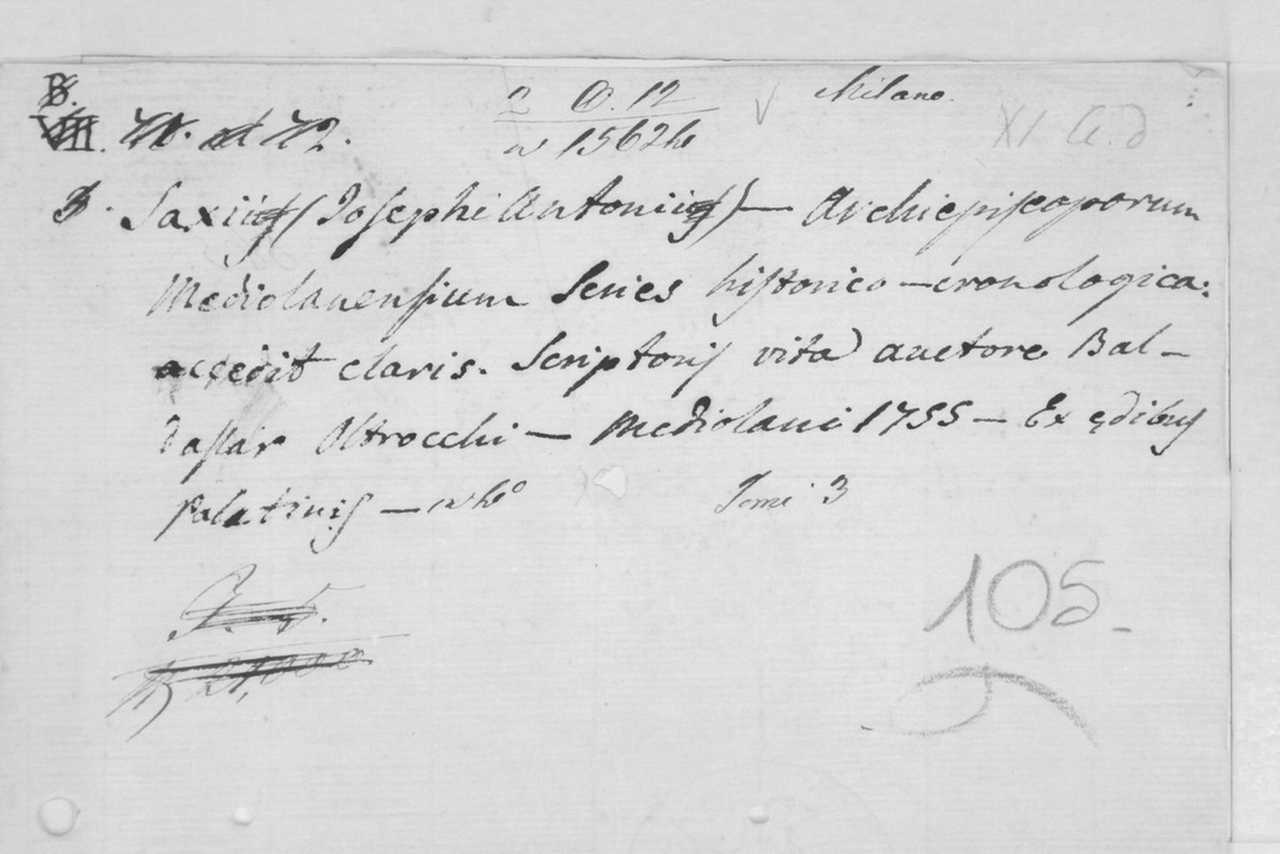 B.
VIII. 70. et 72.
2 O. 12
n 15624
Milano.
XI
Saxii (Josephi Antonii) — Archiepiscoporum
Mediolanensium Series historico-cronologica:
accedit claris. Scriptoris vita auctore Bal-
dassar Oltrocchi — Mediolani 1755 — Ex ędibus
Palatinis — in 4º Tomi 3
105_